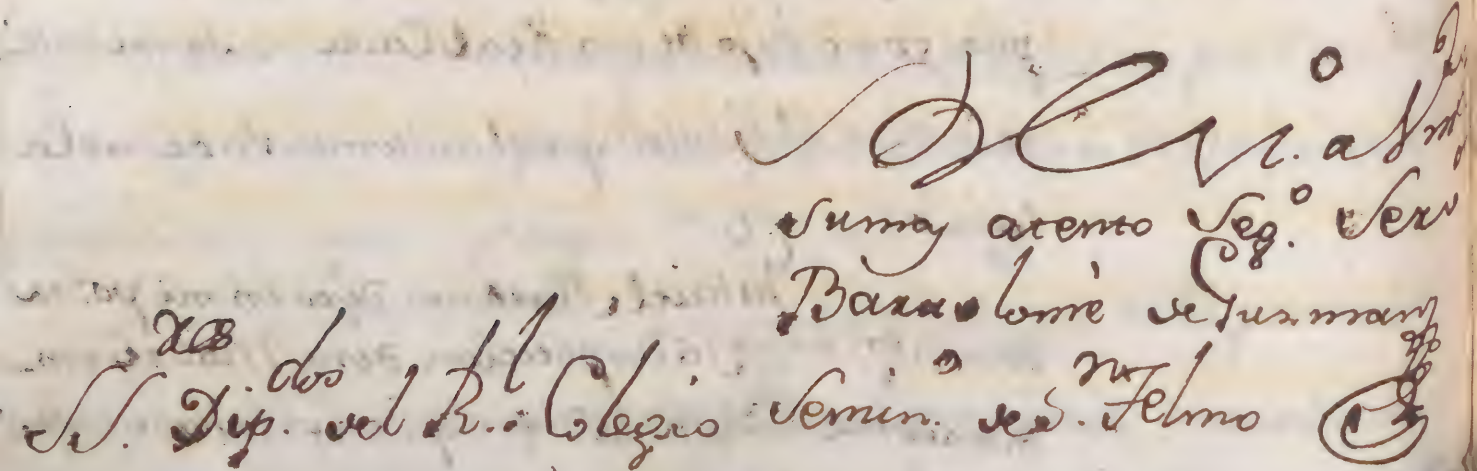 a Vm
Su muy atento Seg.º Serv
Bartolomè de Guzman
SS.res Dip.dos del R.l Colegio Semin.º de S.n Telmo